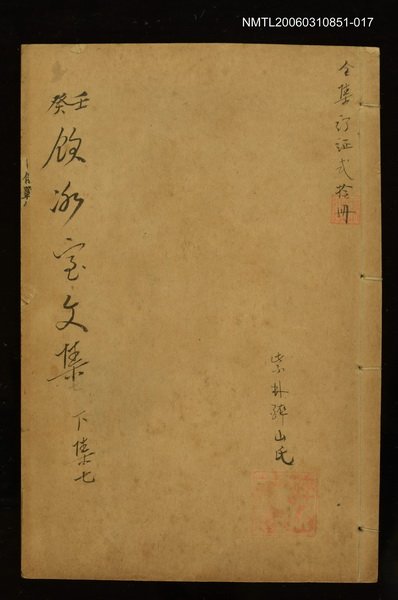 NMTL20060310851-017
全集訂証弐拾冊
壬癸
飲冰室文集 下集七
山氏